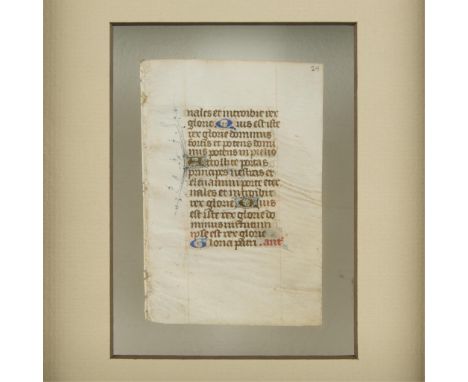 24
nales et introibit rex
glorie Quis est iste
rex glorie dominus
fortis et potens domi
nus potens in prelio
Attollite portas
principes vestras et
elevamini porte eter
nales et introibit
rex glorie Quis
est iste rex glorie do
minus virtutum
ipse est rex glorie
Gloria patri . ant